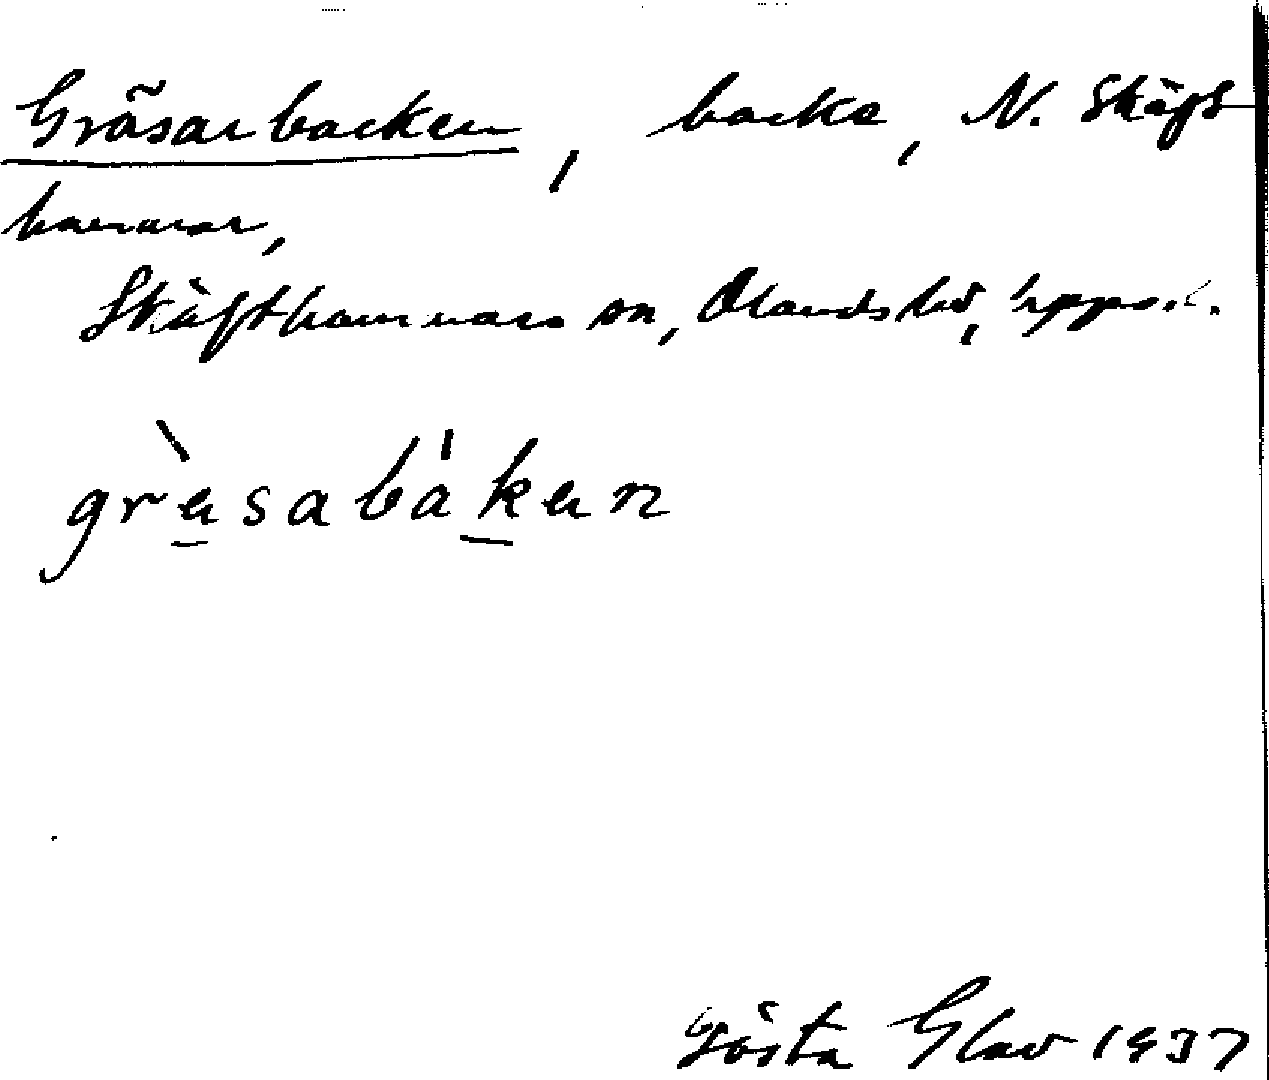 Gräsarbacken, backe, N. Skäft-
hammar,
Skäfthammars sn, Olands hd, Uppsal.
grèsabákɐn
Gösta Glav 1937